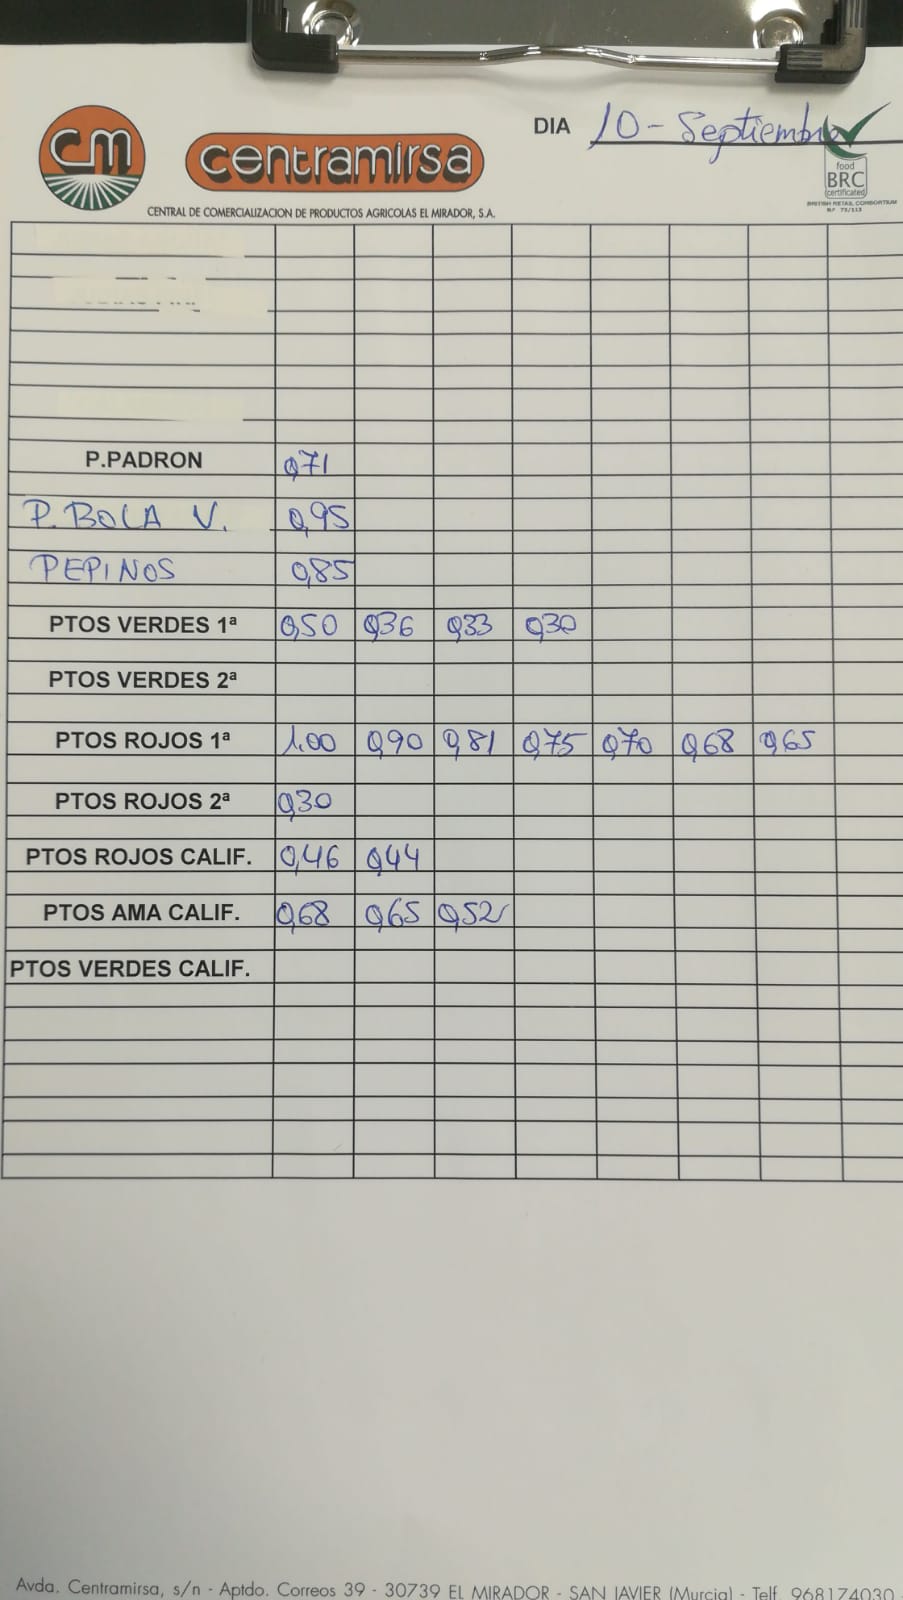 DIA 10-Septiembre
CM centramirsa
food
BRC
certificated
BRITISH RETAIL CONSORTIUM
CENTRAL DE COMERCIALIZACION DE PRODUCTOS AGRICOLAS EL MIRADOR, S.A.
P.PADRON 0,71
P. BOLA V. 0,95
PEPINOS 0,85
PTOS VERDES 1ª 0,50 0,36 0,33 0,30
PTOS VERDES 2ª
PTOS ROJOS 1ª 1.00 0,90 0,81 0,75 0,70 0,68 0,65
PTOS ROJOS 2ª 0,30
PTOS ROJOS CALIF. 0,46 0,44
PTOS AMA CALIF. 0,68 0,65 0,52
PTOS VERDES CALIF.
Avda. Centramirsa, s/n - Aptdo. Correos 39 - 30739 EL MIRADOR - SAN JAVIER (Murcia) - Telf. 968174030